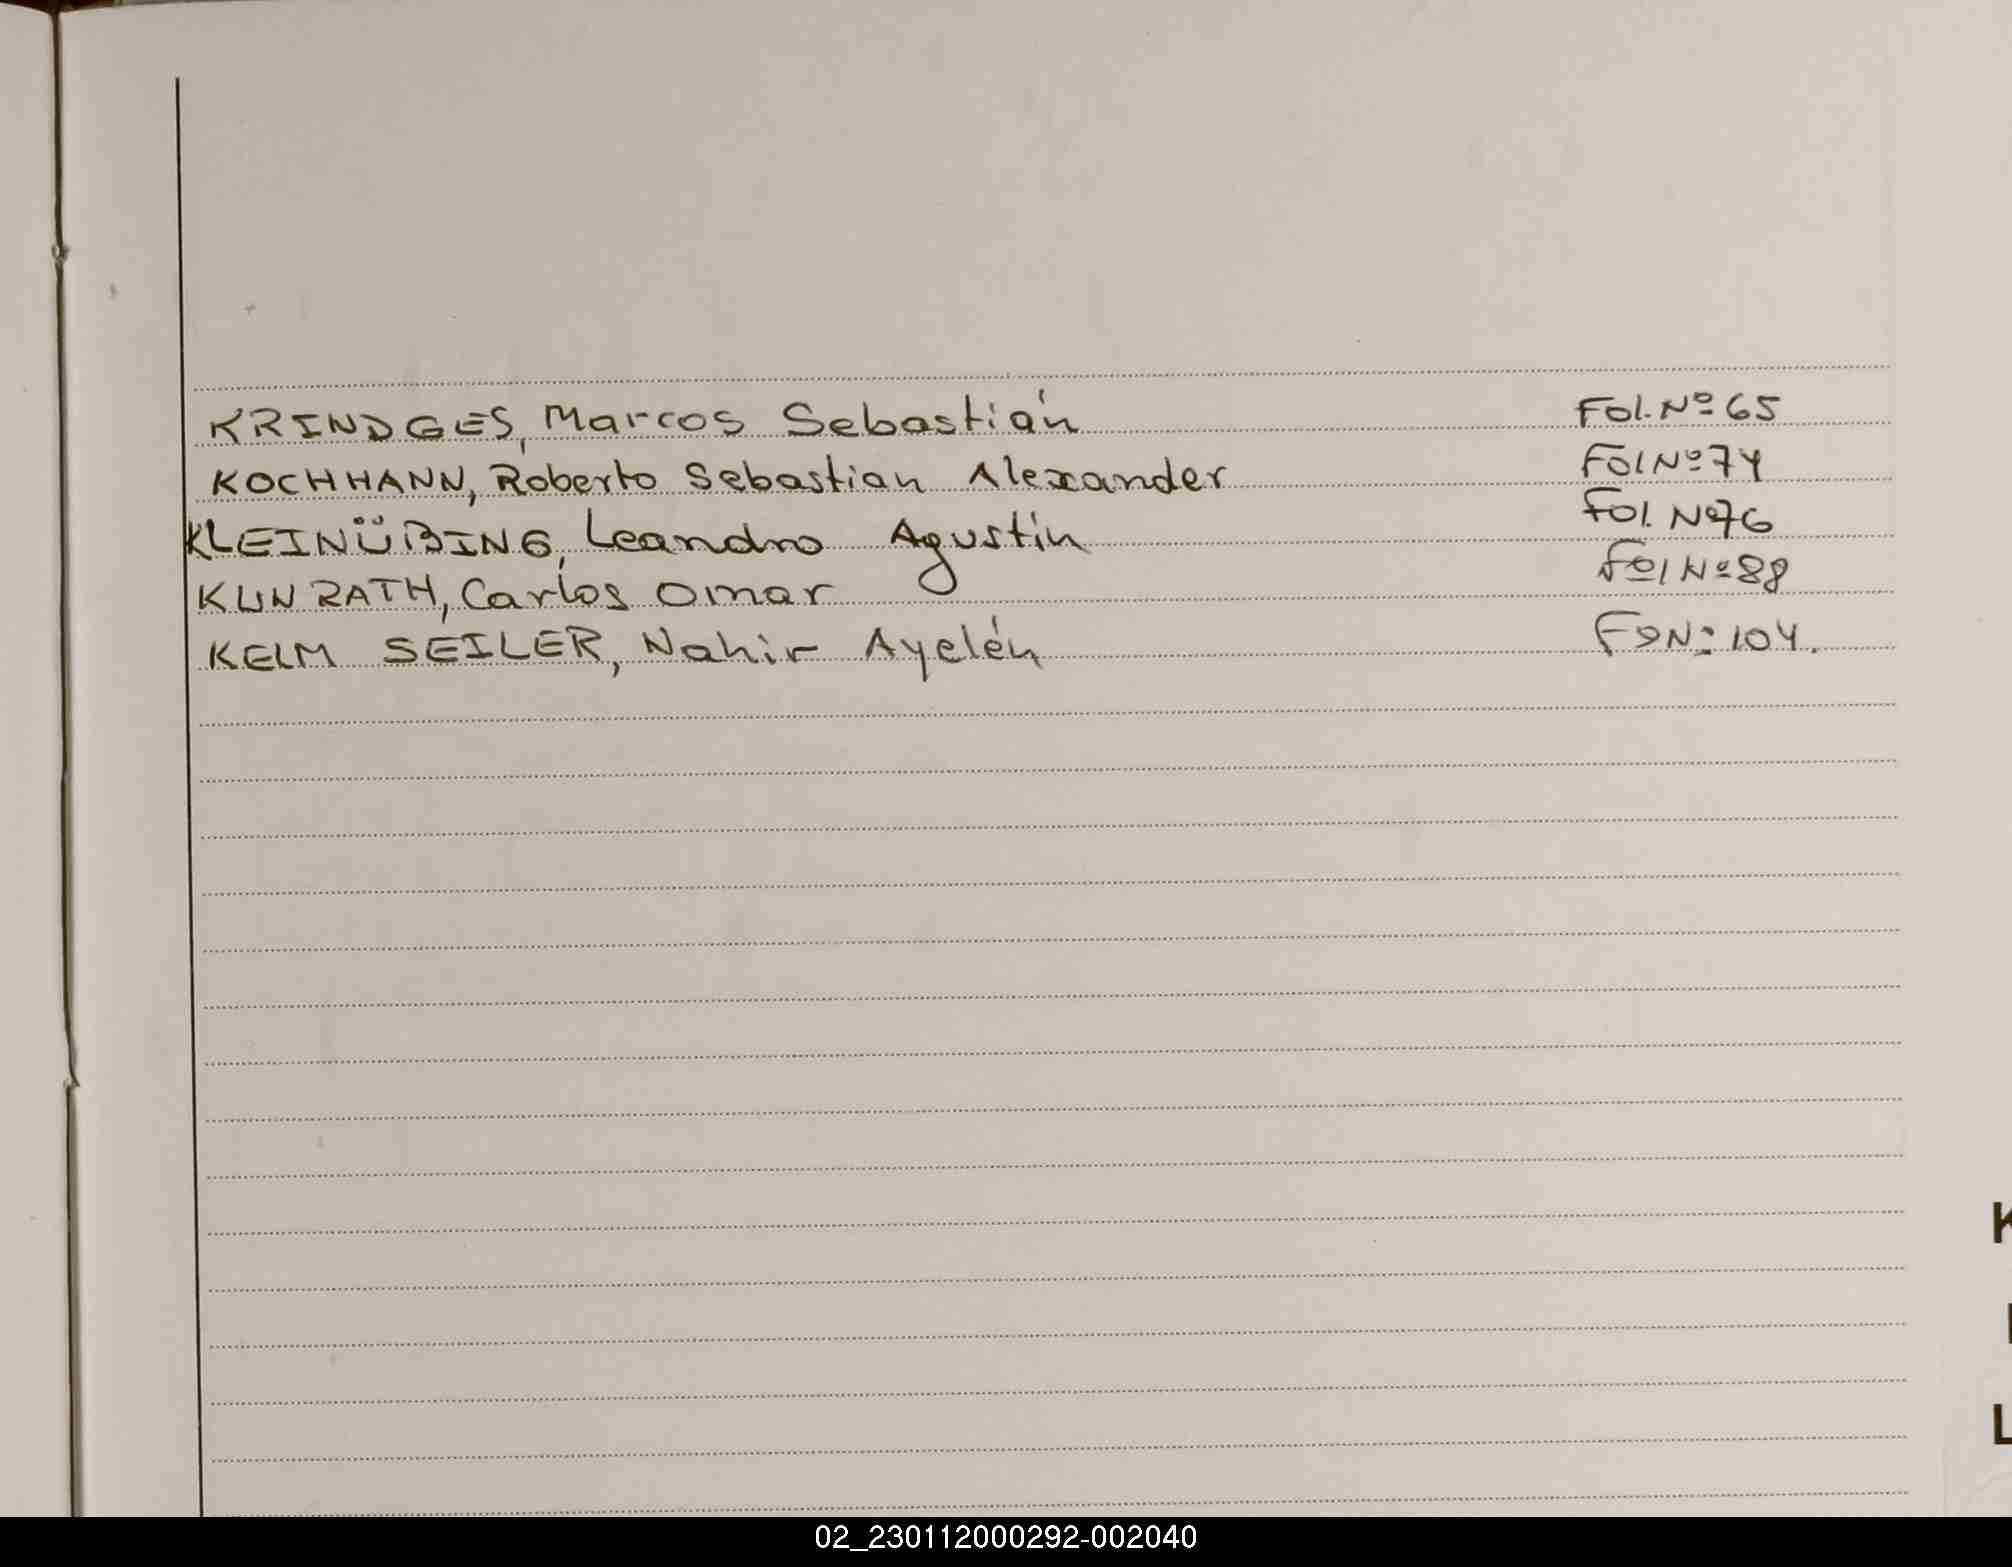 KRINDGES, Marcos Sebastián Fol. Nº 65
KOCHHANN, Roberto Sebastian Alexander Fol Nº 74
KLEINÜBING, Leandro Agustín Fol. Nº 76
KUNRATH, Carlos Omar Fol Nº 88
KELM SEILER, Nahir Ayelén Fº Nº 104.
K
L
02_230112000292-002040